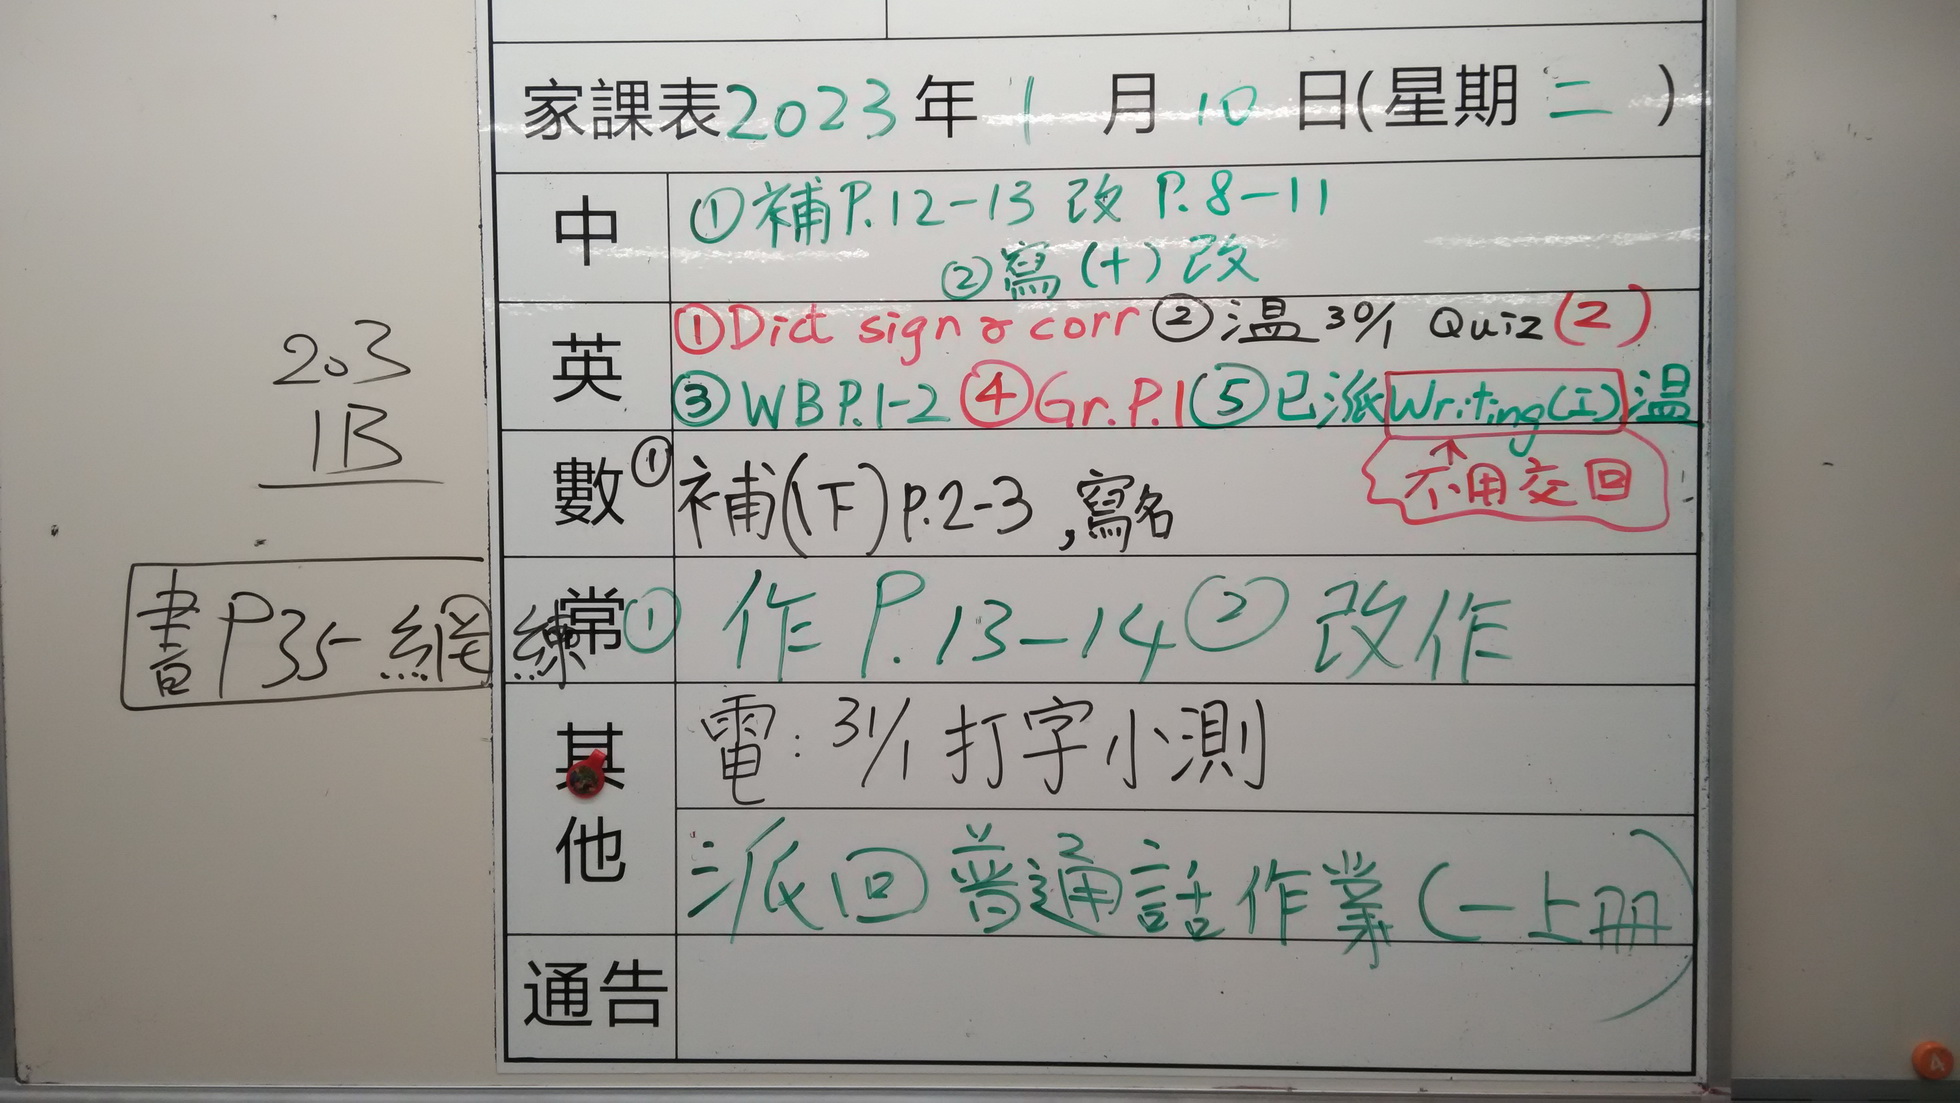 家課表2023年1月10日(星期二)
中
①補P.12-13 改 P.8-11
②寫(十)改
英
①Dict sign & corr ②温 30/1 Quiz(2)
③WB P.1-2 ④Gr.P.1 ⑤已派Writing(I)温
不用交回
數
①補(下)P.2-3,寫名
常
①作 P.13-14 ②改作
其他
電:31/1 打字小測
派回普通話作業(一上冊)
通告
203
1B
書P35-網練